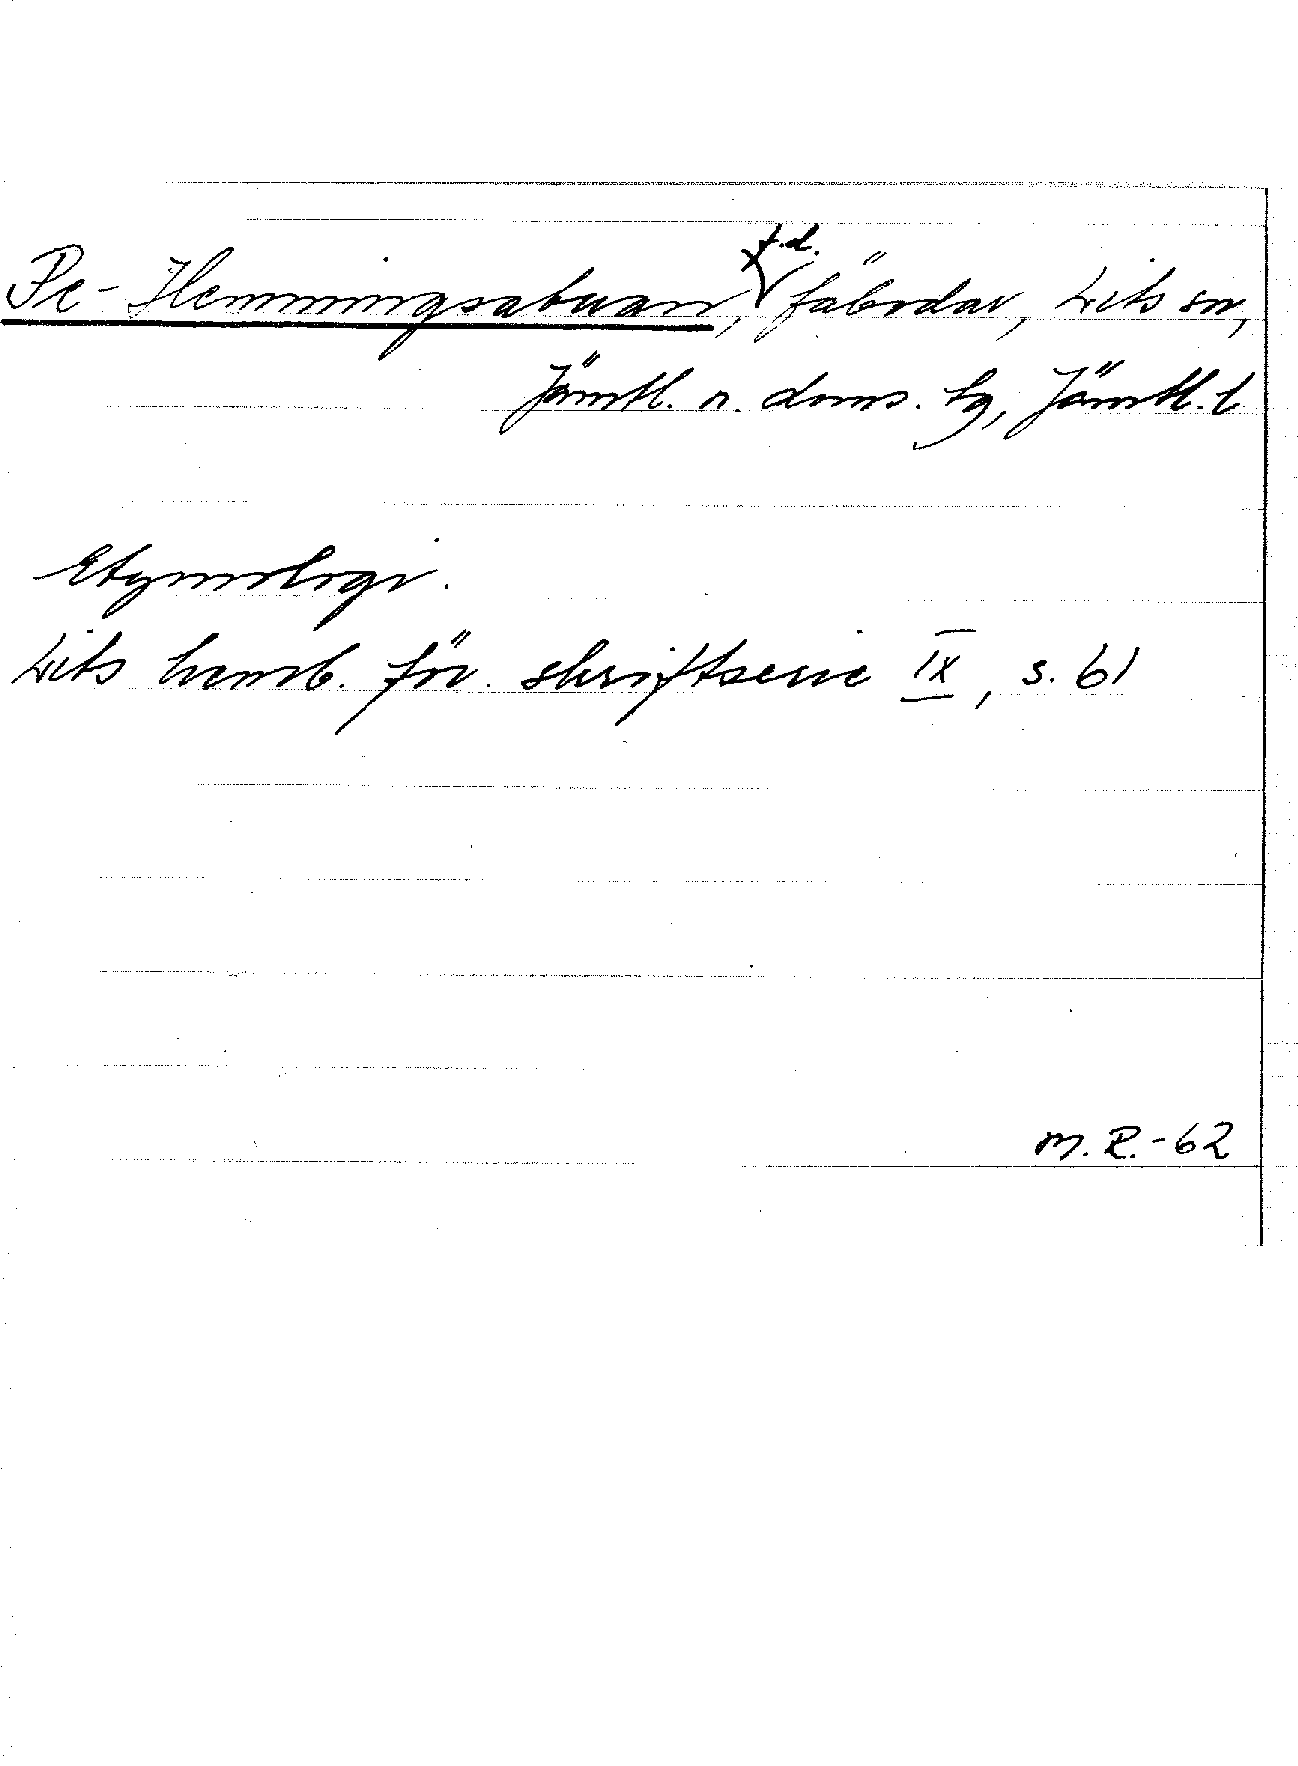 Pe-Hemmingsabuan, f.d. fäbodar, Lits sn,
Jämtl. n. doms. tg, Jämtl. l
Etymologi.
Lits hemb. för. skriftserie IX, s. 61
M.R.-62